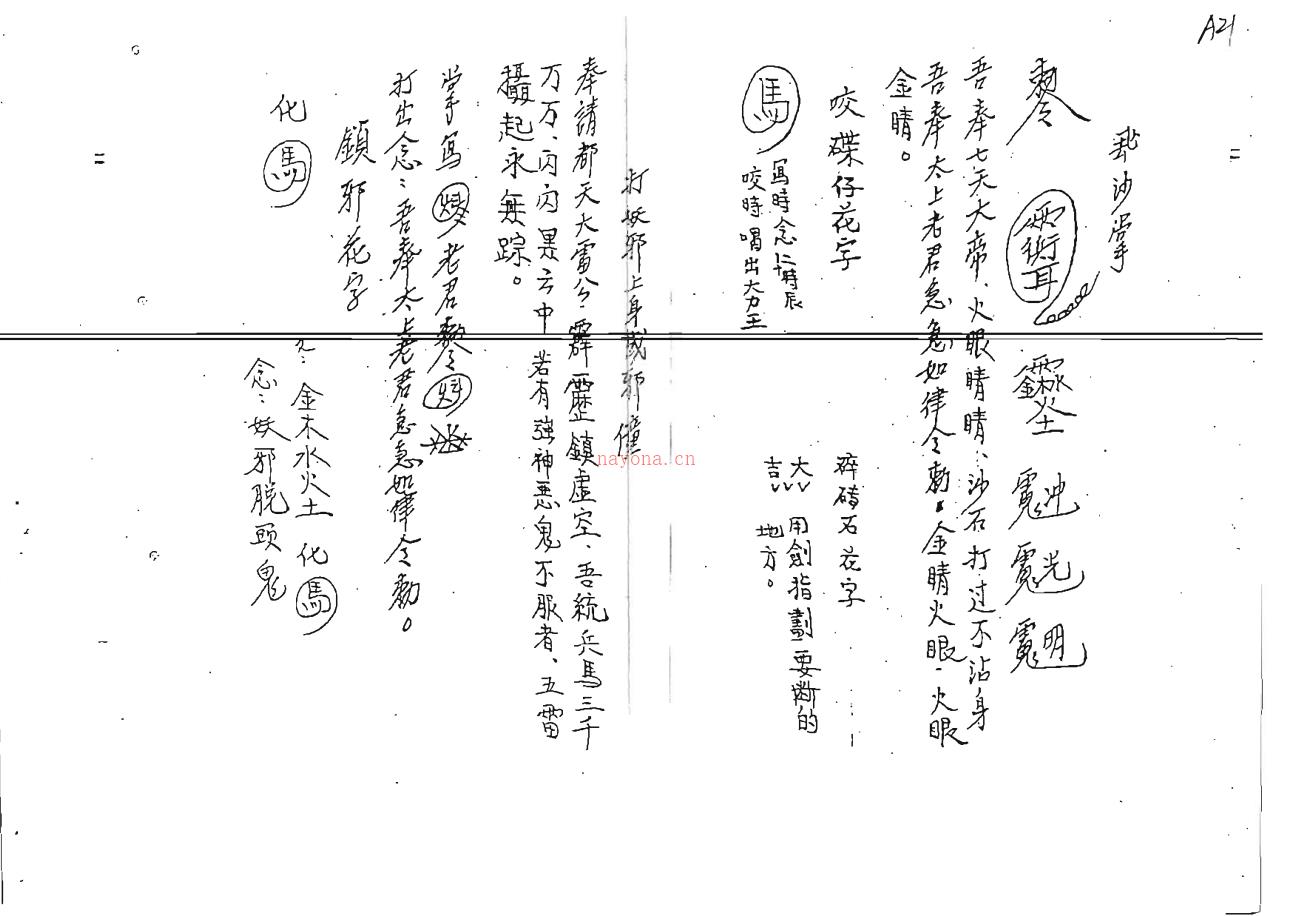 A21
沙掌
吾奉七天大帝、火眼睛睛、沙石打过不沾身
吾奉太上老君急急如律令勅。金睛火眼、火眼
金睛。
咬碟仔花字
碎磚石花字
馬
寫時念 時辰
咬時喝出大力王
大
吉
用劍指劃要断的
地方。
打妖邪上身或邪僮
奉請都天大雷公、霹靂鎮虛空、吾統兵馬三千
万万、闪闪黑云中 若有強神悪鬼不服者、五雷
攝起永無踪。
掌寫 老君
打出念:吾奉太上老君急急如律令勅。
鎖邪花字
化馬
金木水火土 化馬
念:妖邪脫頭鬼
nayona.cn